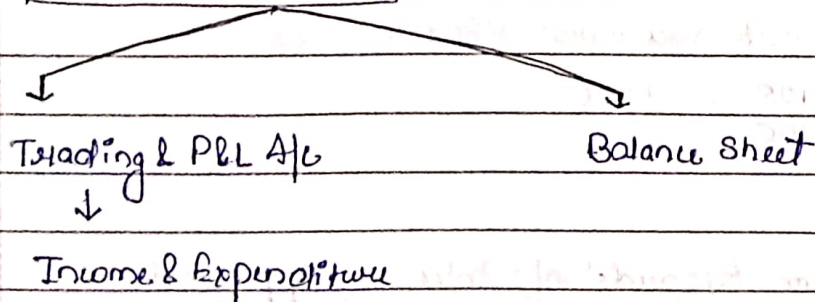 Trading & P&L A/c Balance Sheet
Income & Expenditure